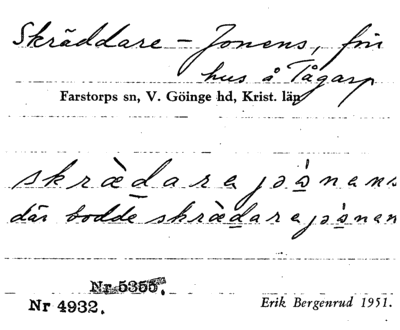 Skräddare-Jonens, fri
hus å Tågarp
Farstorps sn, V. Göinge hd, Krist. län
skræ̀darajånens
där bodde skræ̀darajånen
Nr 5355.
Nr 4932.
Erik Bergenrud 1951.